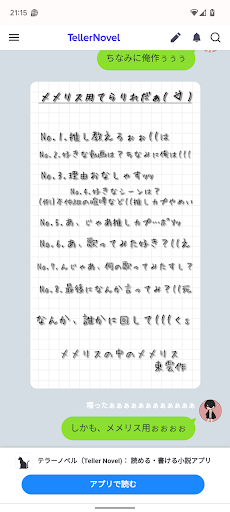 21:15
TellerNovel
ちなみに俺作ぅぅぅ
メメリス用てらりれだぁ(
No.1.推し教えろぉぉ((は
No.2.好きな動画は？ちなみに俺は(((
No.3.理由おなしゃすｯｯ
No.4.好きなシーンは？
(例)不仲2Dの喧嘩など((推しカプやめい
No.5.あ、じゃあ推しカプ…ボソｯ
No.6.あ、歌ってみた好き？((え
No.7.んじゃあ、何の歌ってみたすし？
No.8.最後になんか言ってみ？((死
なんか、誰かに回して(((くs
メメリスの中のメメリス
東雲作
喋ったぁぁぁぁぁぁぁぁぁぁぁぁ
しかも、メメリス用ぉぉぉぉ
テラーノベル（Teller Novel）： 読める・書ける小説アプリ
アプリで読む